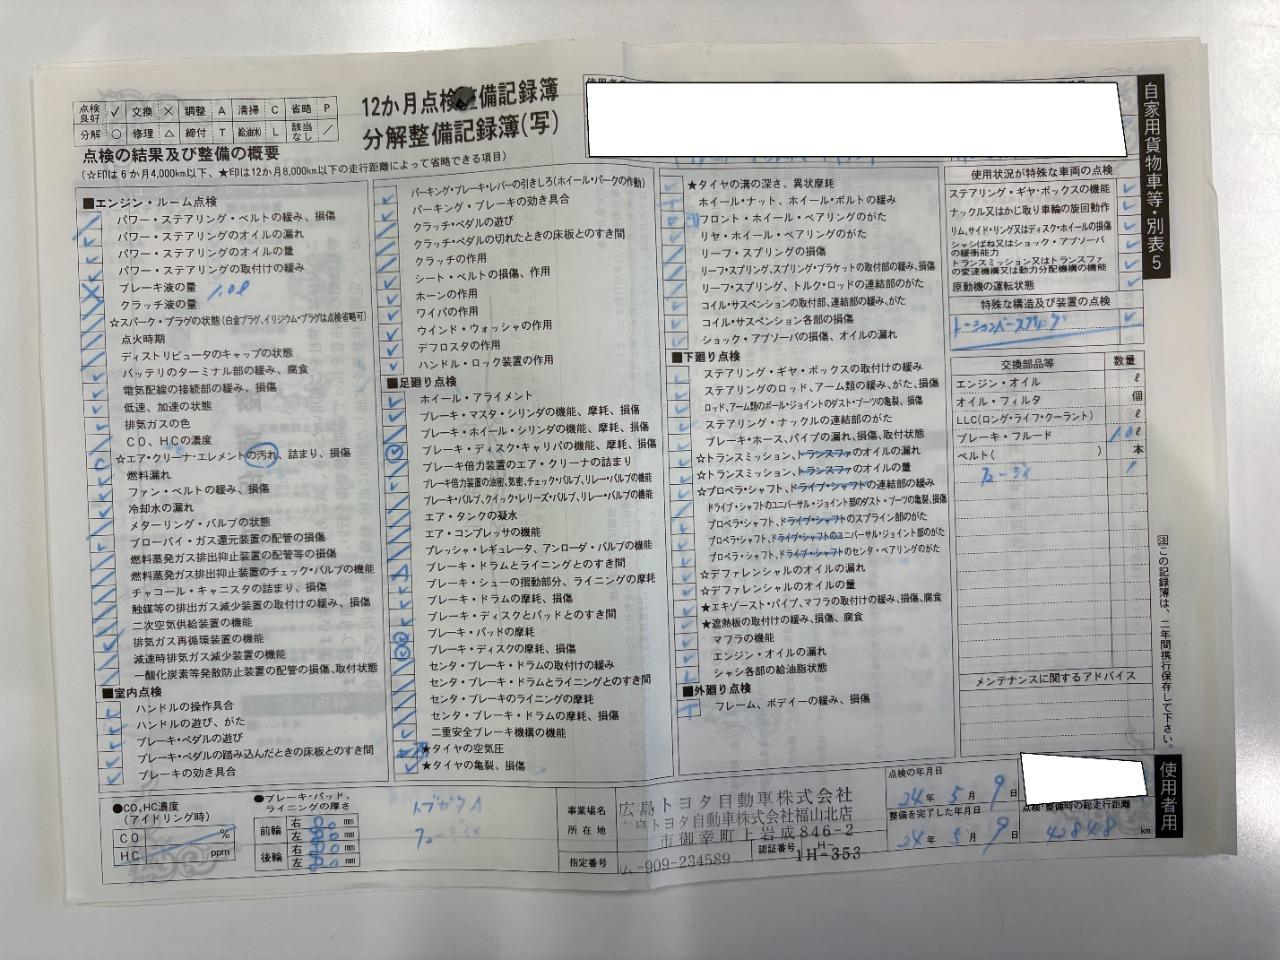 点検良好 ✓ 交換 × 調整 A 清掃 C 省略 P
分解 ○ 修理 △ 締付 T 給油(水) L 該当なし ／
12か月点検整備記録簿
分解整備記録簿(写)
点検の結果及び整備の概要
(☆印は6か月4,000km以下、★印は12か月8,000km以下の走行距離によって省略できる項目)
■エンジン・ルーム点検
パワー・ステアリング・ベルトの緩み、損傷
パワー・ステアリングのオイルの漏れ
パワー・ステアリングのオイルの量
パワー・ステアリングの取付けの緩み
ブレーキ液の量 1.0ℓ
クラッチ液の量
☆スパーク・プラグの状態(白金プラグ、イリジウム・プラグは点検省略可)
点火時期
ディストリビュータのキャップの状態
バッテリのターミナル部の緩み、腐食
電気配線の接続部の緩み、損傷
低速、加速の状態
排気ガスの色
CO、HCの濃度
☆エア・クリーナ・エレメントの汚れ、詰まり、損傷
燃料漏れ
ファン・ベルトの緩み、損傷
冷却水の漏れ
メターリング・バルブの状態
ブローバイ・ガス還元装置の配管の損傷
燃料蒸発ガス排出抑止装置の配管等の損傷
燃料蒸発ガス排出抑止装置のチェック・バルブの機能
チャコール・キャニスタの詰まり、損傷
触媒等の排出ガス減少装置の取付けの緩み、損傷
二次空気供給装置の機能
排気ガス再循環装置の機能
減速時排気ガス減少装置の機能
一酸化炭素等発散防止装置の配管の損傷、取付状態
■室内点検
ハンドルの操作具合
ハンドルの遊び、がた
ブレーキ・ペダルの遊び
ブレーキ・ペダルの踏み込んだときの床板とのすき間
ブレーキの効き具合
パーキング・ブレーキ・レバーの引きしろ(ホイール・パークの作動)
パーキング・ブレーキの効き具合
クラッチ・ペダルの遊び
クラッチ・ペダルの切れたときの床板とのすき間
クラッチの作用
シート・ベルトの損傷、作用
ホーンの作用
ワイパの作用
ウインド・ウォッシャの作用
デフロスタの作用
ハンドル・ロック装置の作用
■足廻り点検
ホイール・アライメント
ブレーキ・マスタ・シリンダの機能、摩耗、損傷
ブレーキ・ホイール・シリンダの機能、摩耗、損傷
ブレーキ・ディスク・キャリパの機能、摩耗、損傷
ブレーキ倍力装置のエア・クリーナの詰まり
ブレーキ倍力装置の油密、気密、チェック・バルブ、リレー・バルブの機能
ブレーキ・バルブ、クイック・レリーズ・バルブ、リレー・バルブの機能
エア・タンクの凝水
エア・コンプレッサの機能
プレッシャ・レギュレータ、アンローダ・バルブの機能
ブレーキ・ドラムとライニングとのすき間
ブレーキ・シューの摺動部分、ライニングの摩耗
ブレーキ・ドラムの摩耗、損傷
ブレーキ・ディスクとパッドとのすき間
ブレーキ・パッドの摩耗
ブレーキ・ディスクの摩耗、損傷
センタ・ブレーキ・ドラムの取付けの緩み
センタ・ブレーキ・ドラムとライニングとのすき間
センタ・ブレーキのライニングの摩耗
センタ・ブレーキ・ドラムの摩耗、損傷
二重安全ブレーキ機構の機能
★タイヤの空気圧
★タイヤの亀裂、損傷
★タイヤの溝の深さ、異状摩耗
ホイール・ナット、ホイール・ボルトの緩み
フロント・ホイール・ベアリングのがた
リヤ・ホイール・ベアリングのがた
リーフ・スプリングの損傷
リーフ・スプリング、スプリング・ブラケットの取付部の緩み、損傷
リーフ・スプリング、トルク・ロッドの連結部のがた
コイル・サスペンションの取付部、連結部の緩み、がた
コイル・サスペンション各部の損傷
ショック・アブソーバの損傷、オイルの漏れ
■下廻り点検
ステアリング・ギヤ・ボックスの取付けの緩み
ステアリングのロッド、アーム類の緩み、がた、損傷
ロッド、アーム類のボール・ジョイントのダスト・ブーツの亀裂、損傷
ステアリング・ナックルの連結部のがた
ブレーキ・ホース、パイプの漏れ、損傷、取付状態
☆トランスミッション、トランスファのオイルの漏れ
☆トランスミッション、トランスファのオイルの量
☆プロペラ・シャフト、ドライブ・シャフトの連結部の緩み
ドライブ・シャフトのユニバーサル・ジョイント部のダスト・ブーツの亀裂、損傷
プロペラ・シャフト、ドライブ・シャフトのスプライン部のがた
プロペラ・シャフト、ドライブ・シャフトのユニバーサル・ジョイント部のがた
プロペラ・シャフト、ドライブ・シャフトのセンタ・ベアリングのがた
☆デファレンシャルのオイルの漏れ
☆デファレンシャルのオイルの量
★エキゾースト・パイプ、マフラの取付けの緩み、損傷、腐食
★遮熱板の取付けの緩み、損傷、腐食
マフラの機能
エンジン・オイルの漏れ
シャシ各部の給油脂状態
■外廻り点検
フレーム、ボデイーの緩み、損傷
使用状況が特殊な車両の点検
ステアリング・ギヤ・ボックスの機能
ナックル又はかじ取り車輪の旋回動作
リム、サイド・リング又はディスク・ホイールの損傷
シャシばね又はショック・アブソーバの緩衝能力
トランスミッション又はトランスファの変速機構又は動力分配機構の機能
原動機の運転状態
特殊な構造及び装置の点検
トーションバースプリング
交換部品等 数量
エンジン・オイル ℓ
オイル・フィルタ 個
LLC(ロング・ライフ・クーラント) ℓ
ブレーキ・フルード 1.0ℓ
ベルト( ) 本
メンテナンスに関するアドバイス
自家用貨物車等・別表5
注 この記録簿は、二年間携行保存して下さい。
使用者用
●CO、HC濃度
(アイドリング時)
CO %
HC ppm
●ブレーキ・パッド、ライニングの厚さ
前輪 右 mm
左 mm
後輪 右 mm
左 mm
事業場名 広島トヨタ自動車株式会社
広島トヨタ自動車株式会社福山北店
所在地 市御幸町上岩成846-2
指定番号 -909-234589 認証番号 1H-353
点検の年月日
24年 5月 9日
整備を完了した年月日
24年 5月 9日
点検・整備時の総走行距離
42848 km